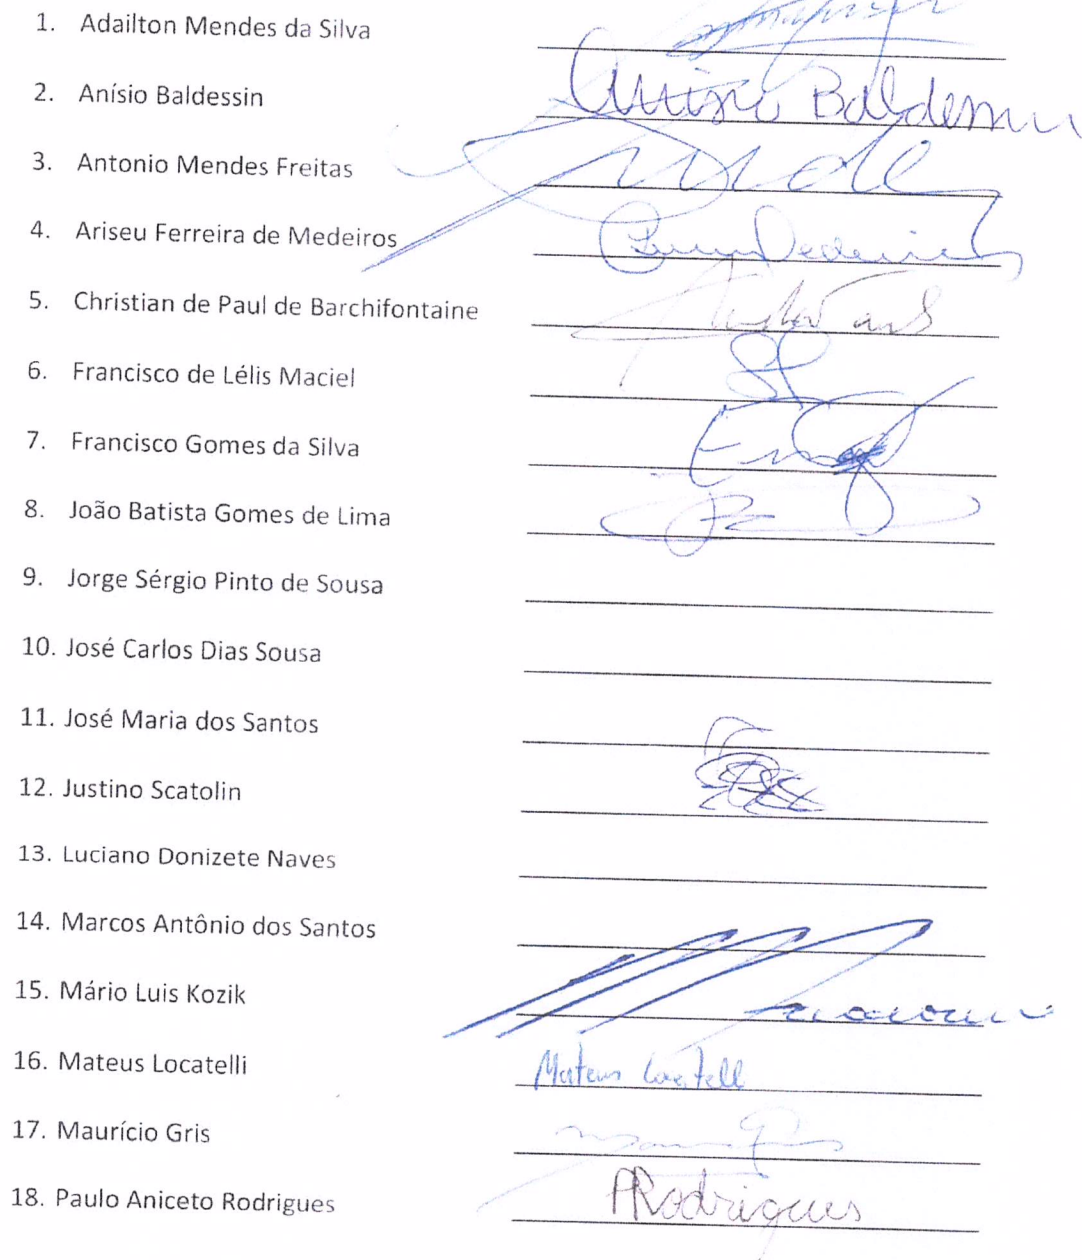 1. Adailton Mendes da Silva
2. Anísio Baldessin
3. Antonio Mendes Freitas
4. Ariseu Ferreira de Medeiros
5. Christian de Paul de Barchifontaine
6. Francisco de Lélis Maciel
7. Francisco Gomes da Silva
8. João Batista Gomes de Lima
9. Jorge Sérgio Pinto de Sousa
10. José Carlos Dias Sousa
11. José Maria dos Santos
12. Justino Scatolin
13. Luciano Donizete Naves
14. Marcos Antônio dos Santos
15. Mário Luis Kozik
16. Mateus Locatelli Mateus
17. Maurício Gris
18. Paulo Aniceto Rodrigues PRodrigues